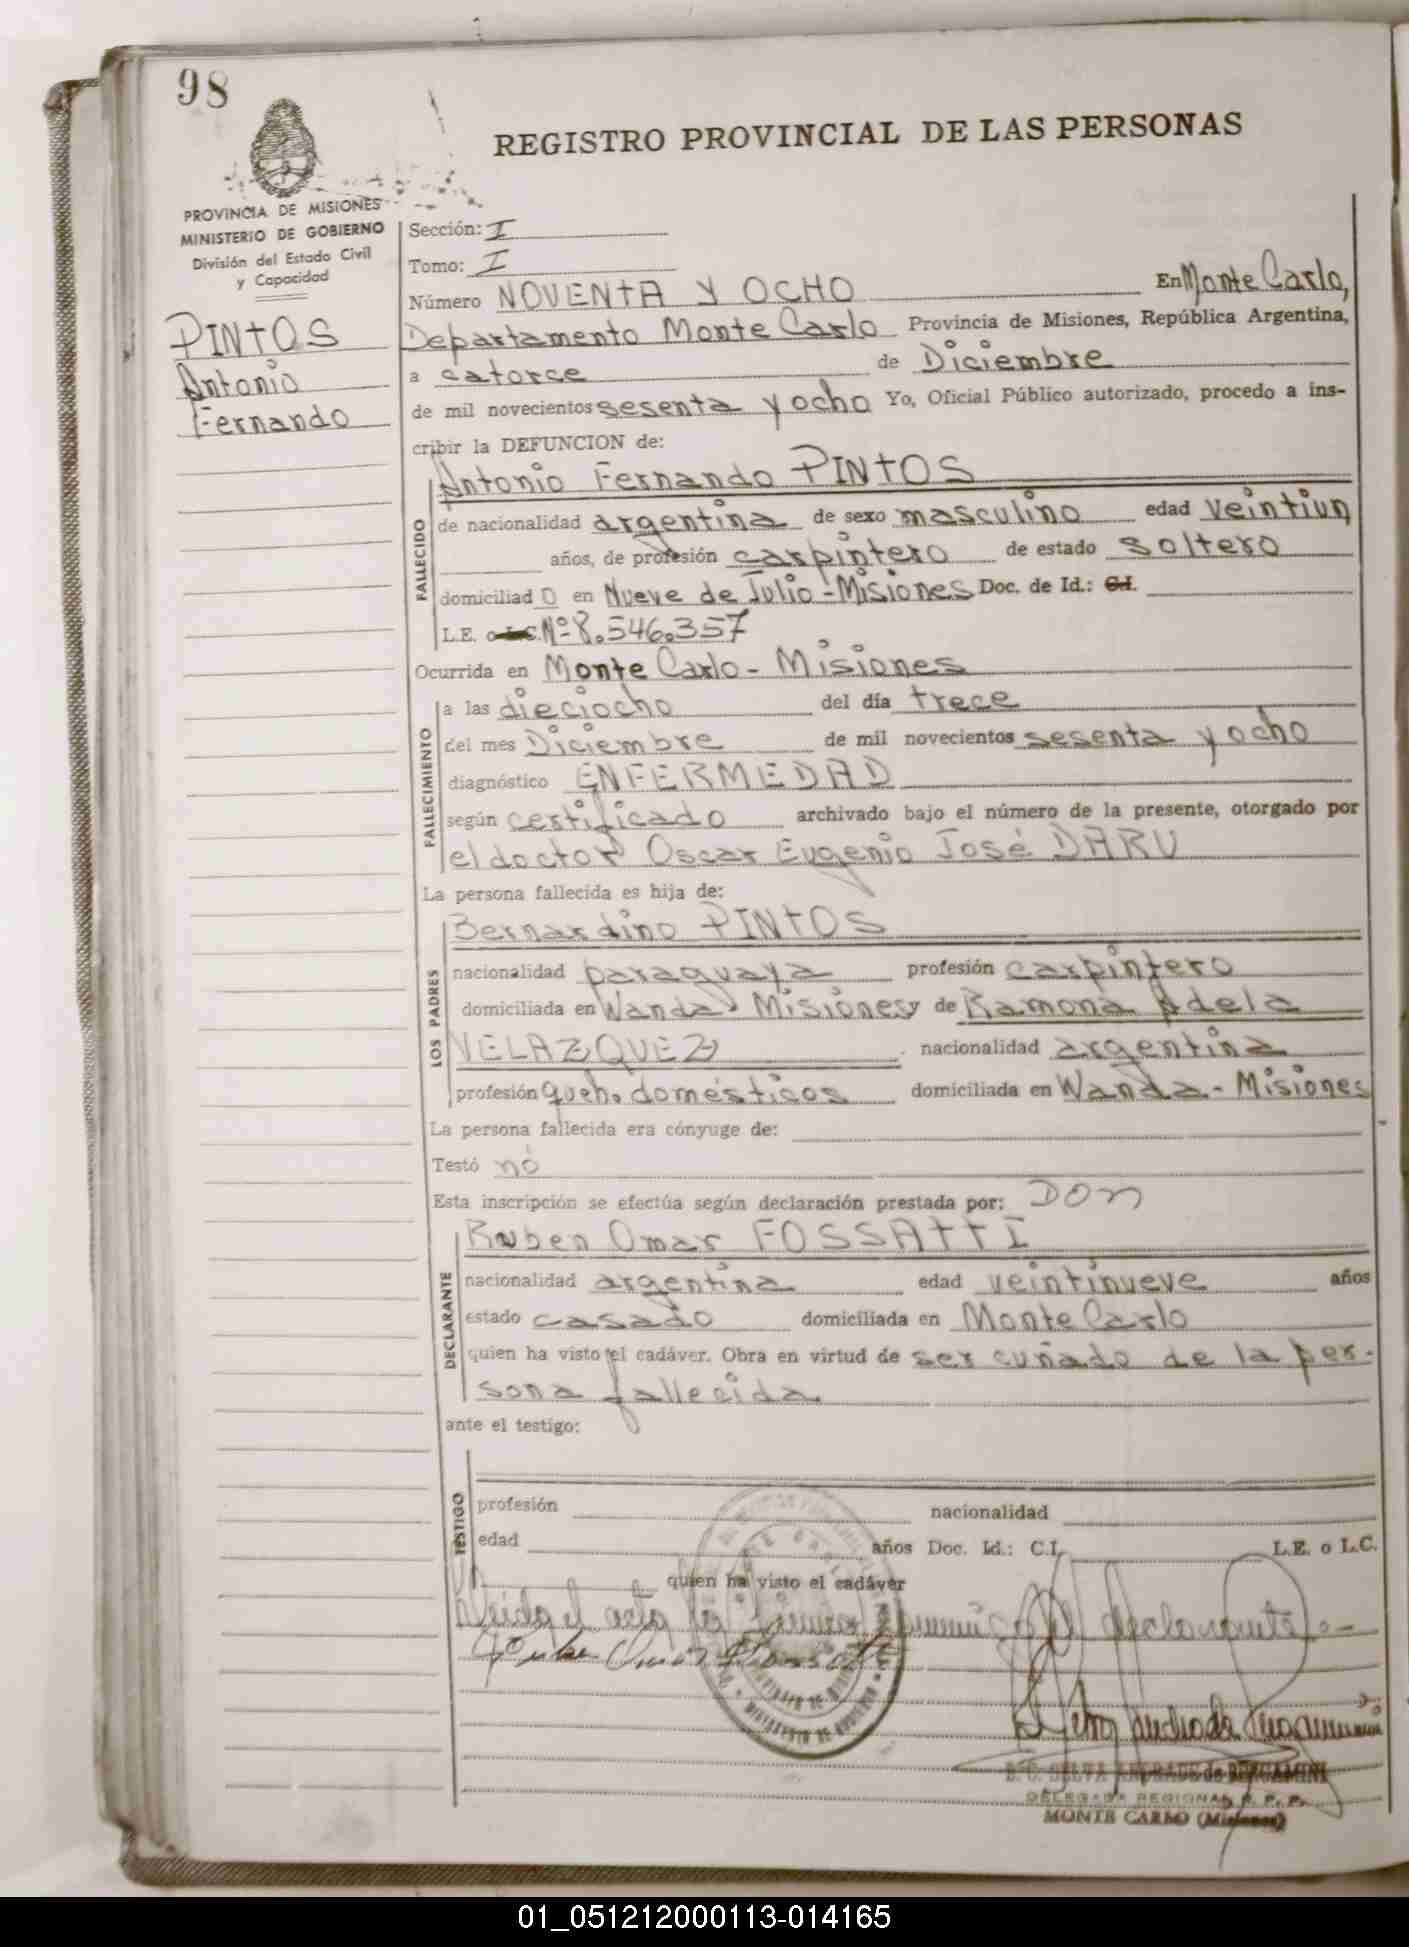 98
REGISTRO PROVINCIAL DE LAS PERSONAS
PROVINCIA DE MISIONES
MINISTERIO DE GOBIERNO
División del Estado Civil
y Capacidad
PINTOS
Antonio
Fernando
Sección: I
Tomo: I
Número NOVENTA Y OCHO En Monte Carlo,
Departamento Monte Carlo Provincia de Misiones, República Argentina,
a catorce de Diciembre
de mil novecientos sesenta y ocho Yo, Oficial Público autorizado, procedo a ins-
cribir la DEFUNCION de:
Antonio Fernando PINTOS
FALLECIDO
de nacionalidad argentina de sexo masculino edad veintiun
años, de profesión carpintero de estado soltero
domiciliad o en Nueve de Julio - Misiones Doc. de Id.: C.I.
L.E. o L.C. Nº 8.546.357
Ocurrida en Monte Carlo - Misiones
FALLECIMIENTO
a las dieciocho del día trece
del mes Diciembre de mil novecientos sesenta y ocho
diagnóstico ENFERMEDAD
según certificado archivado bajo el número de la presente, otorgado por
el doctor Oscar Eugenio José DARU
La persona fallecida es hija de:
LOS PADRES
Bernardino PINTOS
nacionalidad paraguaya profesión carpintero
domiciliada en Wanda - Misiones y de Ramona Adela
VELAZQUEZ nacionalidad argentina
profesión queh. domésticos domiciliada en Wanda - Misiones
La persona fallecida era cónyuge de:
Testó nó
Esta inscripción se efectúa según declaración prestada por: Don
DECLARANTE
Ruben Omar FOSSATTI
nacionalidad argentina edad veintinueve años
estado casado domiciliada en Monte Carlo
quien ha visto el cadáver. Obra en virtud de ser cuñado de la per-
sona fallecida
ante el testigo:
TESTIGO
profesión nacionalidad
edad años Doc. Id.: C.I. L.E. o L.C.
quien ha visto el cadáver
Leida el acta la firma conmigo el declarante.-
D. C. SELVA ANDRADE de BERGAMINI
DELEGADA REGIONAL R. P. P.
MONTE CARLO (Misiones)
01_051212000113-014165